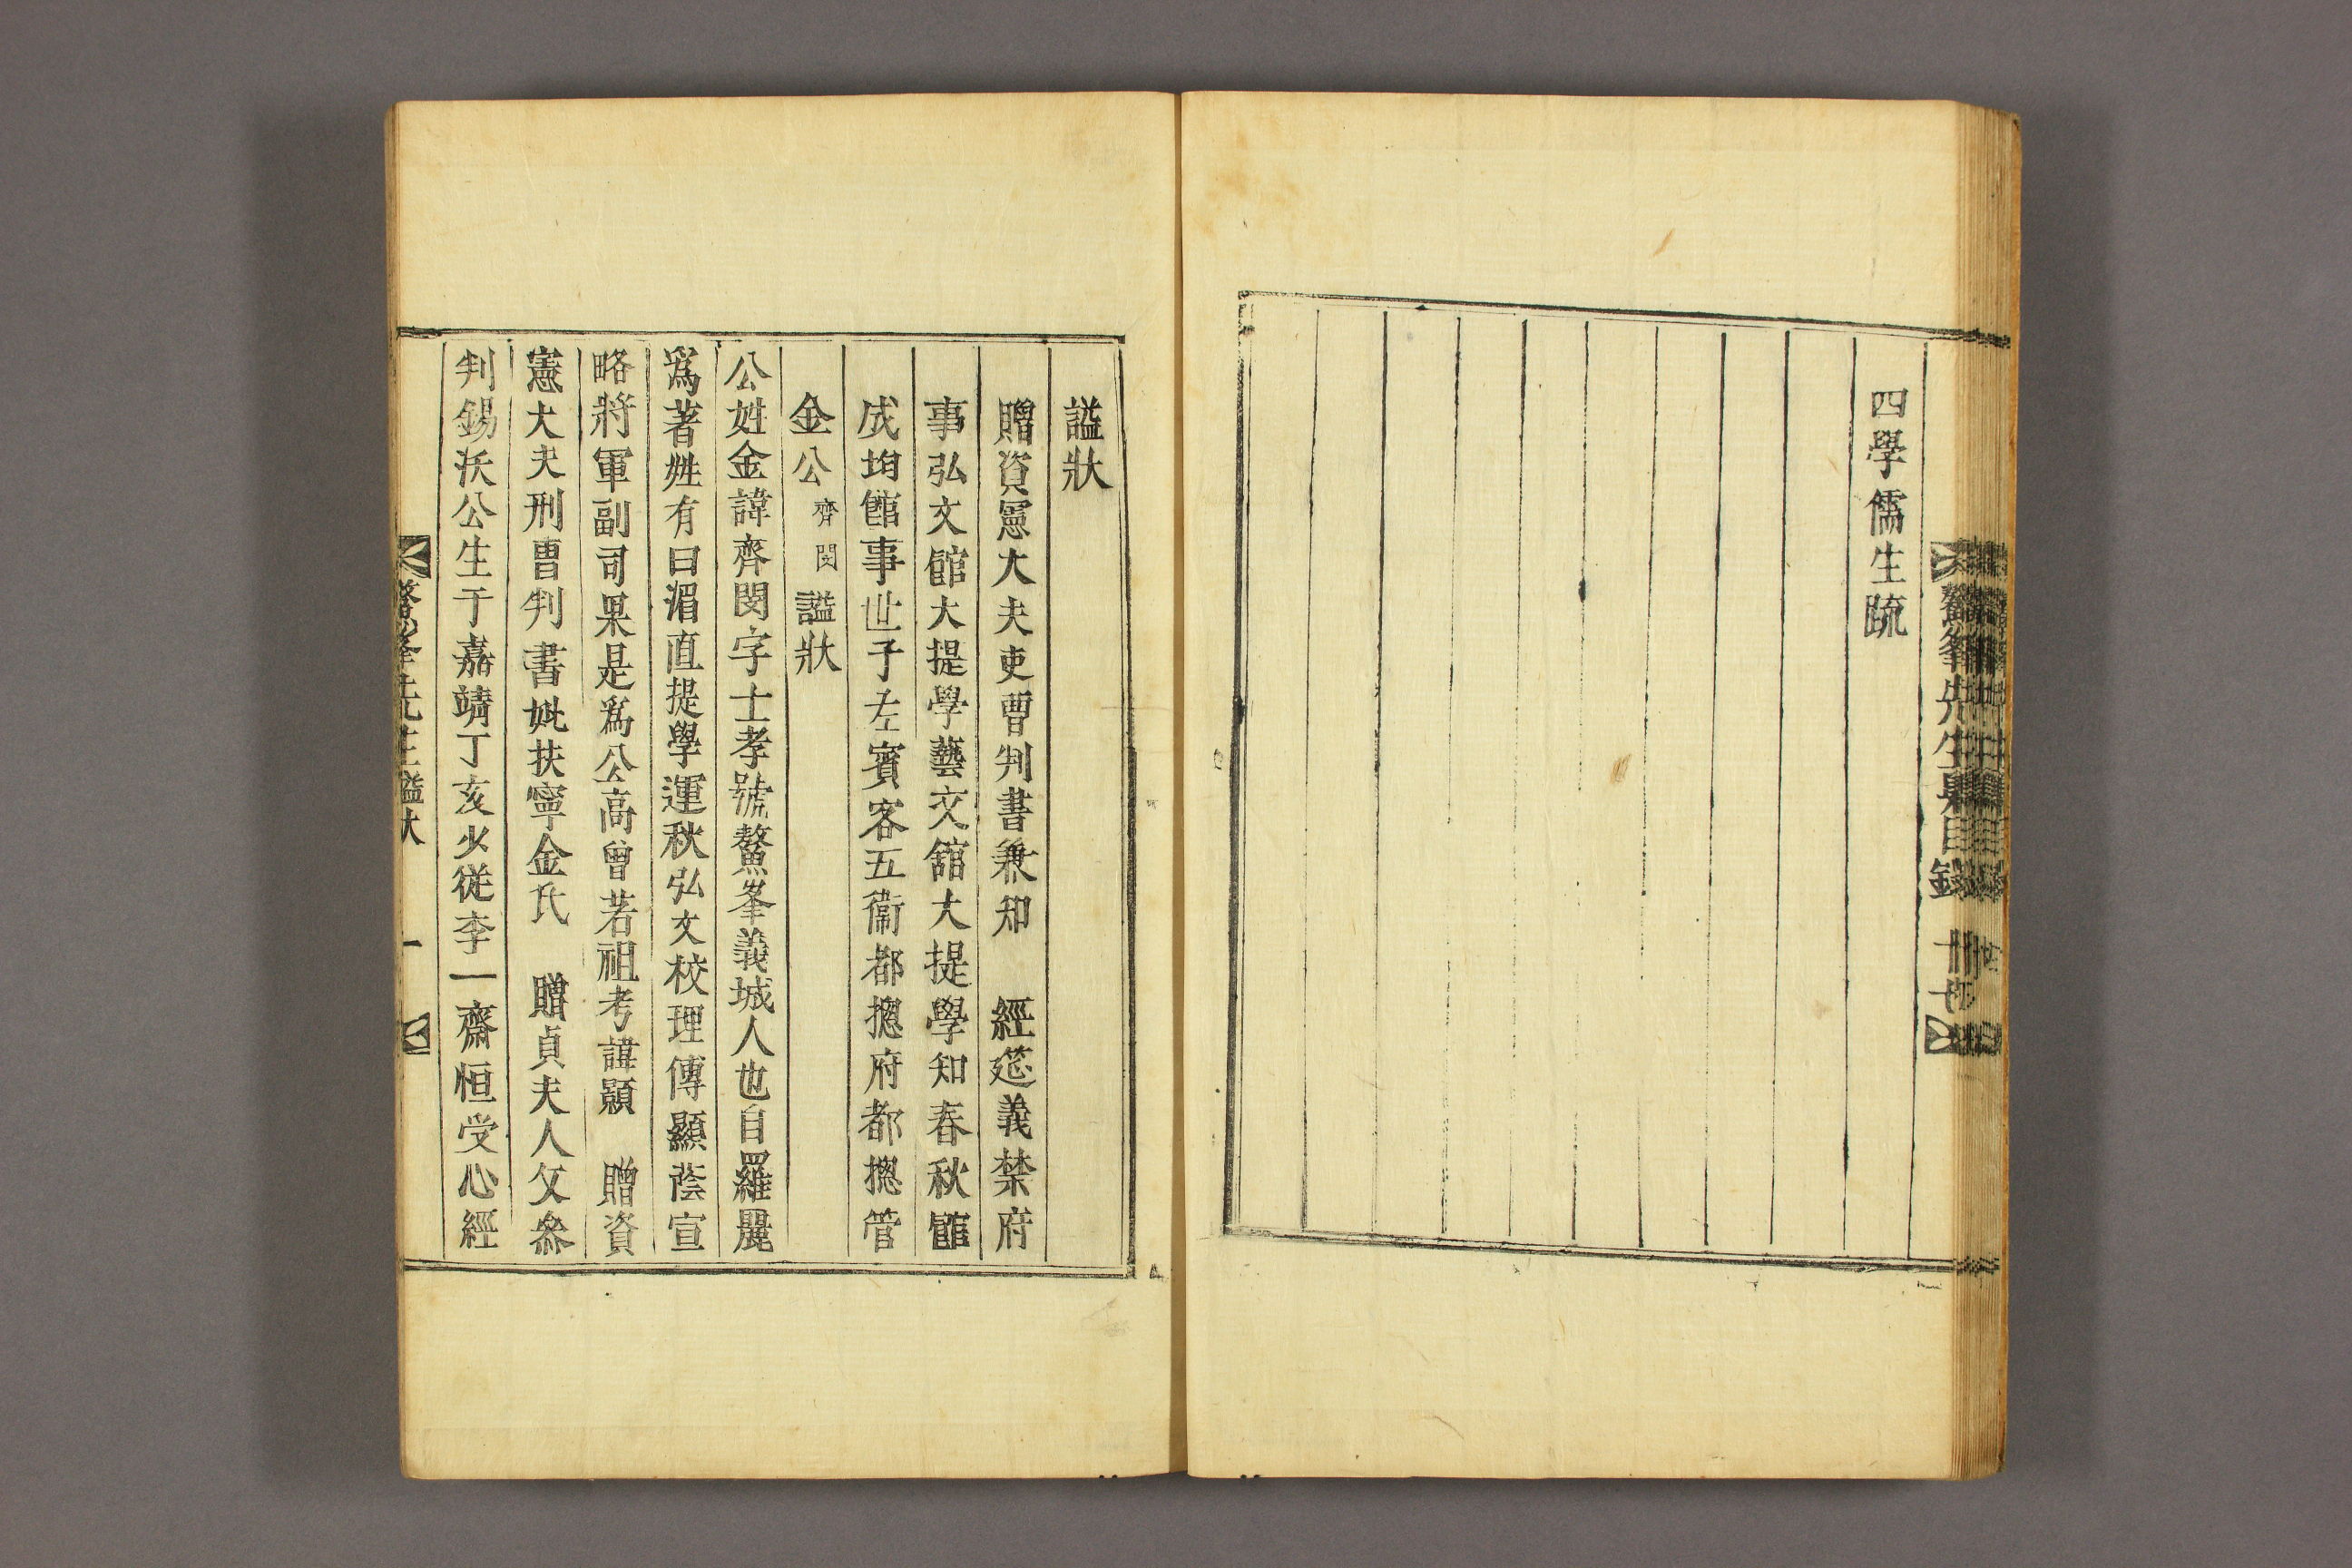 四學儒生疏
鰲峯先生集目錄
諡狀
贈資憲大夫吏曹判書兼知 經筵義禁府
事弘文館大提學藝文舘大提學知春秋館
成均館事世子左賓客五衛都摠府都摠管
金公齊閔諡狀
公姓金諱齊閔字士孝號鰲峯義城人也自羅麗
爲著姓有曰湄直提學運秋弘文校理傳顯蔭宣
略將軍副司果是爲公高曾若祖考諱顥 贈資
憲大夫刑曹判書妣扶寧金氏 贈貞夫人父叅
判錫沃公生于嘉靖丁亥少從李一齋恒受心經
鰲峯先生諡狀 一